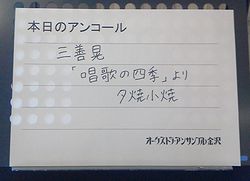 本日のアンコール
三善晃
「唱歌の四季」より
夕焼小焼
オーケストラ・アンサンブル金沢